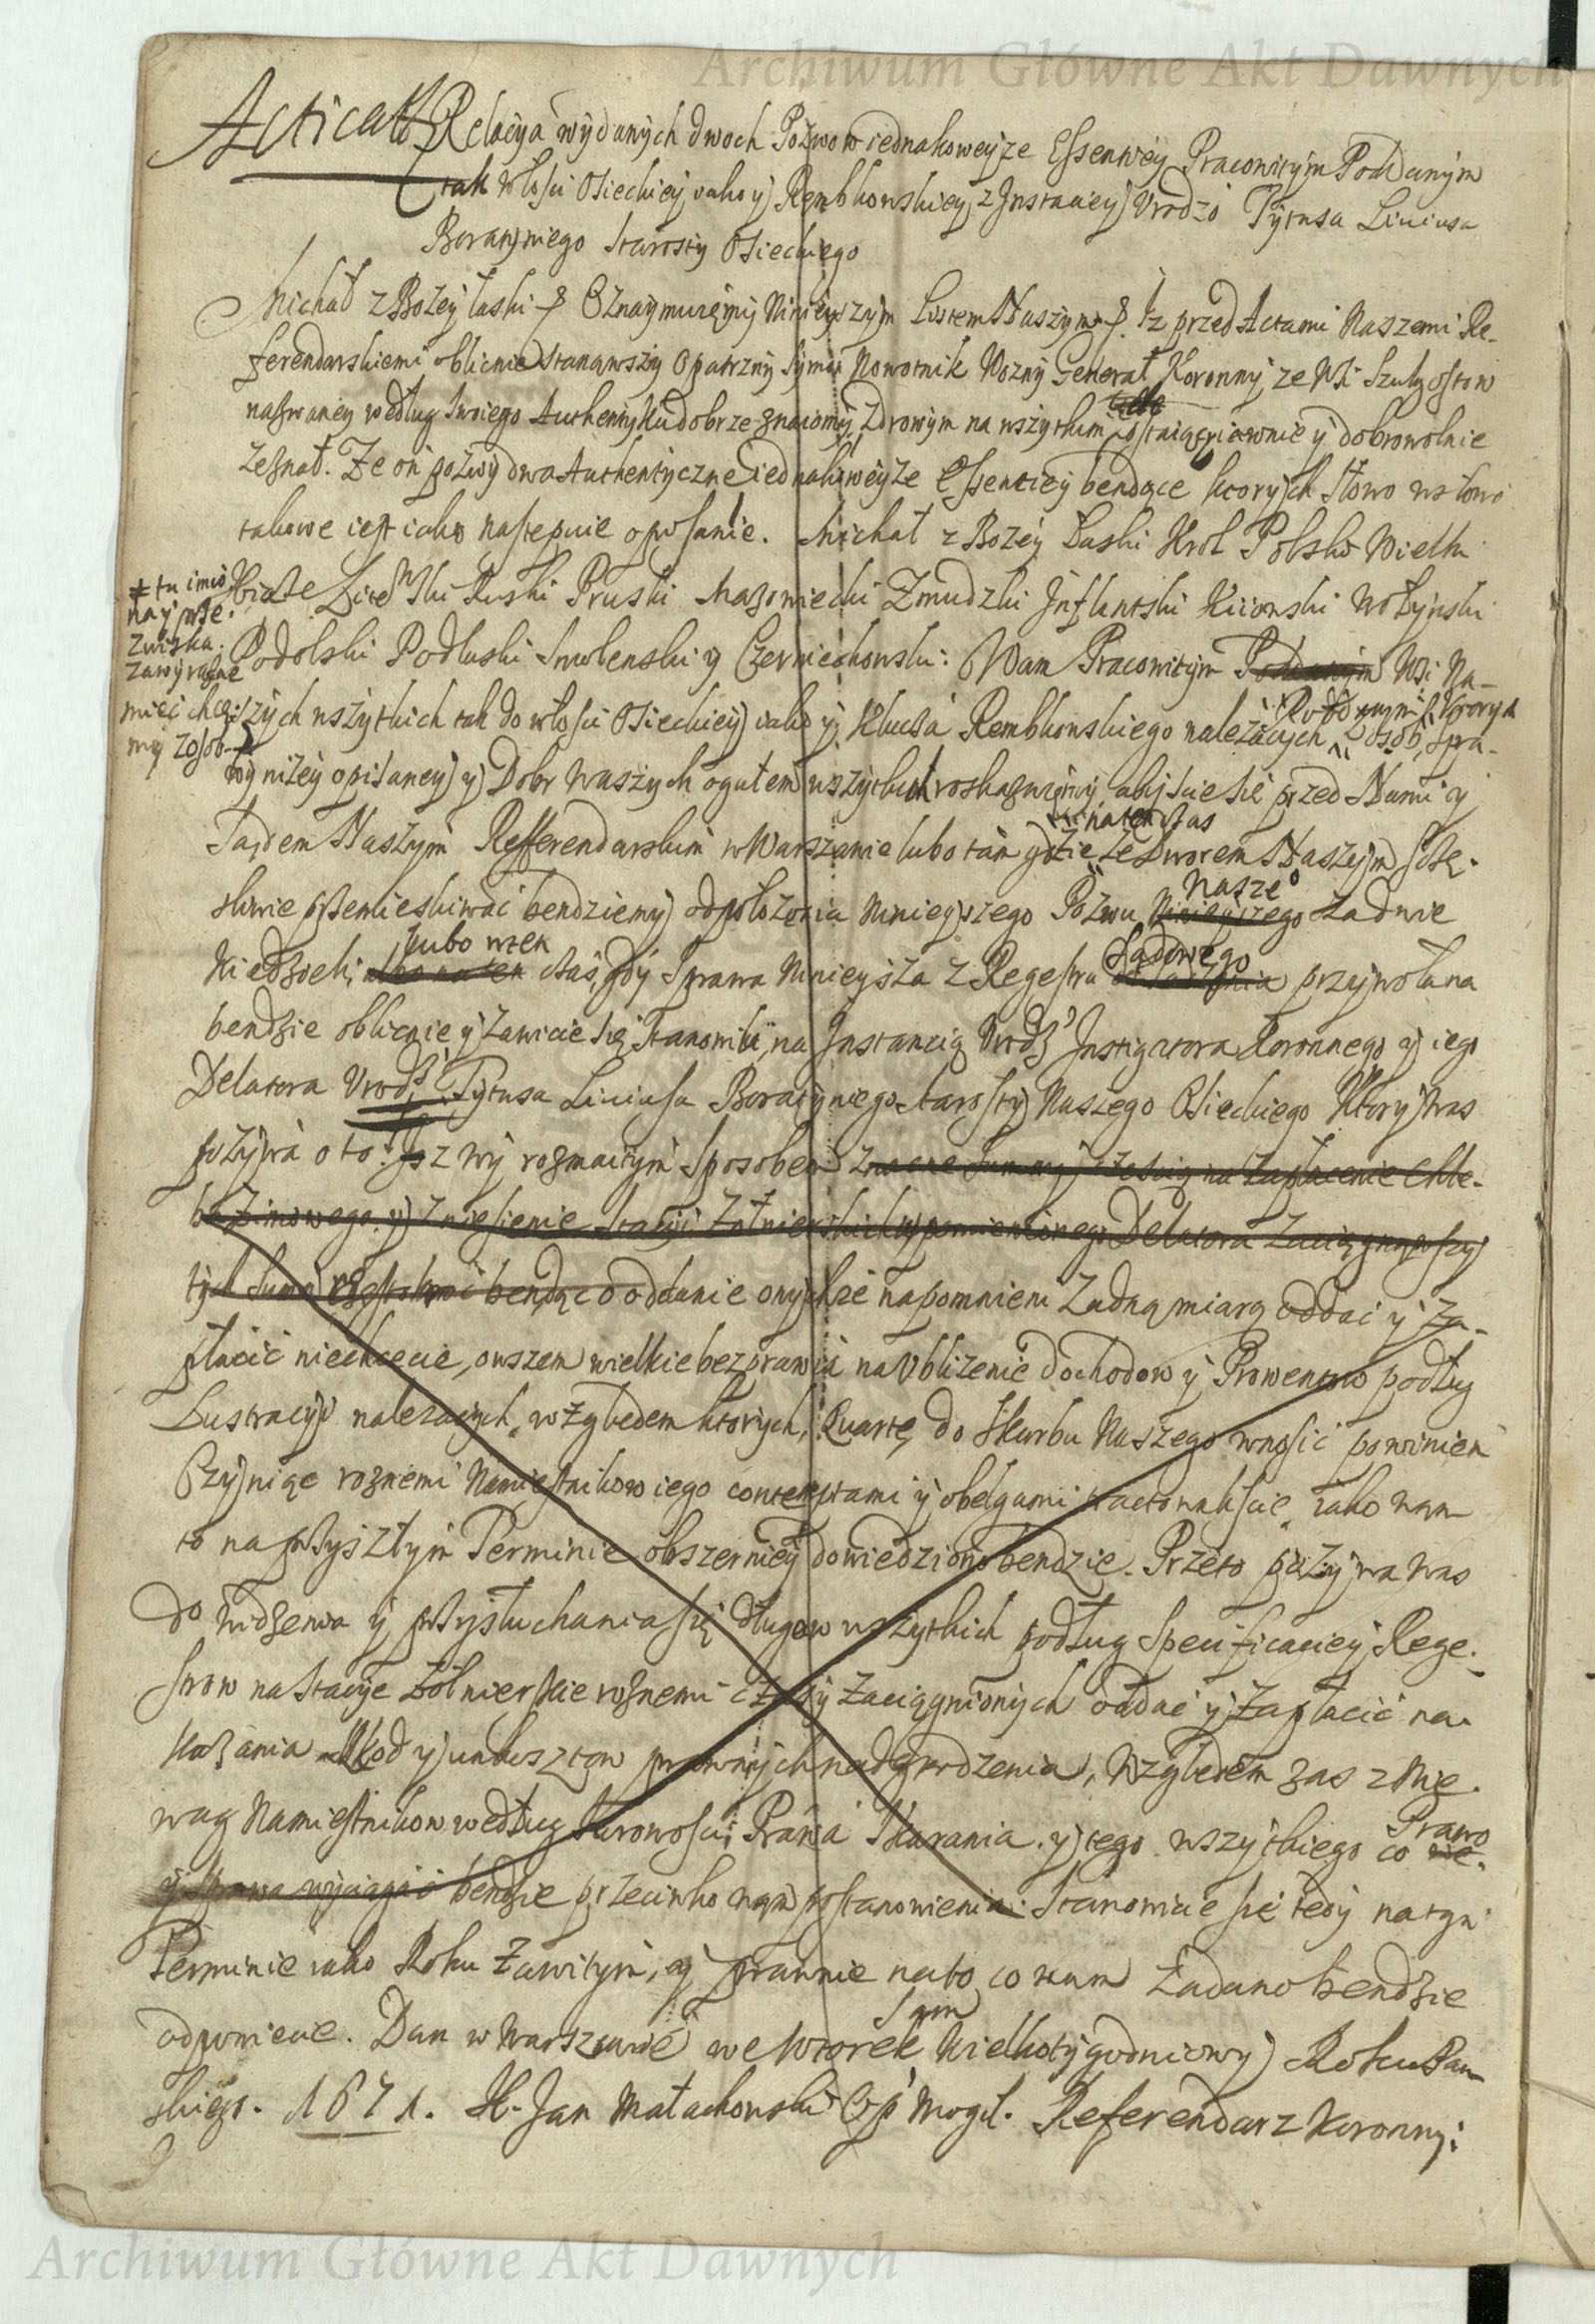 Archiwum Główne Akt Dawnych
Acticatio Relacya wydanych dwoch Pozwow iednakoweyze Essentiey Pracowitym Poddanym
tak włosci Osieckiey iako y Rembkowskiey z Instanciey Urodzo Tytusa Liuiusa
Boratyniego Starosty Osieckiego
Michał z Bożey łaski Oznaymuięmy Ninieyszym Listem Naszym Iz przed Actami Naszemi Re-
ferendarskiemi oblicznie stanąwszy Opatrzny Nowotnik Wozny Generał Koronny ze Wsi
nazwaney według swoiego Authentyku dobrze znaiomy, Zdrowym na wszytkim iawnie y dobrowolnie
Zeznał. Ze on pozwy dwa Authentyczne iednakoweyze Essentiey bendące ktorych słowo w słowo
takowe iest iako nastepuie opisanie. Michał z Bożey Łaski Krol Polski Wielki
# tu imio
nay
zwiska
zawyrazne
mieć chce
my zosob
Xiąże Litewski Ruski Pruski Mazowiecki Zmudzki Inflantski Kiiowski Wołynski
Podolski Podlaski Smolenski y Czerniechowski: Wam Pracowitym Poddanym Wsi Na-
szych wszytkich tak do włosci Osieckiey iako y Klucza Rembkowskiego należących Poddanym z Osob, spra-
wy niżey opisaney y Dobr waszych ogułem wszytkich roskazuiemy abyscie się przed Nami y
Sądem Naszym Refferendarskim w Warszawie lubo tam gdzie natenczas ze Dworem Naszym szczę-
sliwie przemieskiwać bendziemy od położenia ninieyszego Pozwu Ninieyszego Nasze za dwie
Niedzieli, lubo wten czas, gdy Sprawa Ninieysza z Regestru Sądowego przywołana
bendzie oblicznie y zawicie się stanowili, na Instancią Urodz Instigatora Koronnego y iego
Delatora Urodz Tytusa Liuiusa Boratyniego Starosty Naszego Osieckiego Ktory Was
pozywa o to: Isz wy rozmaitym sposobem znaczne Summy na zapłacenie Chle-
ba Zimowego y Zniesienie Stacyi Żołnierskich wpomienionego Delatora zaciągnąwszy
tych Summ bendąc o oddanie onychże napomnieni Zadną miarą oddać y Za-
płacić niechcecie, owszem wielkie bezprawia na Ubliżenie dochodow y Prowentow podług
Lustracyi nalezacych, wzgledem ktorych, Kwartę do Skarbu Naszego wnosić powinien
Czyniąc roznemi Namiestnikow iego contemptami y obelgami tractowaliscie, iako wam
to na przyszłym Terminie obszerniey dowiedziono bendzie. Przeto pozywa was
do widzenia y przysłuchania się długow wszytkich podług Specificaciey Rege-
strow na Stacye Żołnierskie roznemi czasy zaciągnionych oddać y zapłacić na-
kazania szkod y prawnych nadgrodzenia, Wzgledem zas znie-
wag Namiestnikow według surowosci Prawa Skarania y tego wszytkiego co Prawo
y sprawa wyciągać bendzie przeciwko wam postanowienia. Stanowcie się tedy na tym
Terminie iako Roku Zawitym, y prawnie na to co wam Zadano bendzie
odpowiecie. Dan w Warszawie we Wtorek Sam Wielkotygodniowy Roku Pan-
skiego. 1671. X. Jan Małachowski Op Mogil. Referendarz Koronny:
Archiwum Główne Akt Dawnych